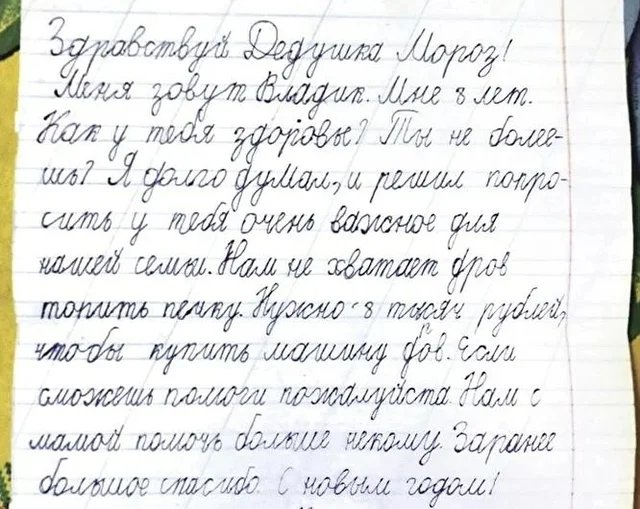 Здравствуй Дедушка Мороз!
Меня зовут Владик. Мне 8 лет.
Как у тебя здоровье? Ты не более-
шь? Я долго думал, и решил попро-
сить у тебя очень важное для
нашей семьи. Нам не хватает дров
топить печку. Нужно 8 тысяч рублей,
чтобы купить машину дов. Если
сможешь помоги пожалуйста. Нам с
мамой помочь больше некому. Заранее
большое спасибо. С новым годом!